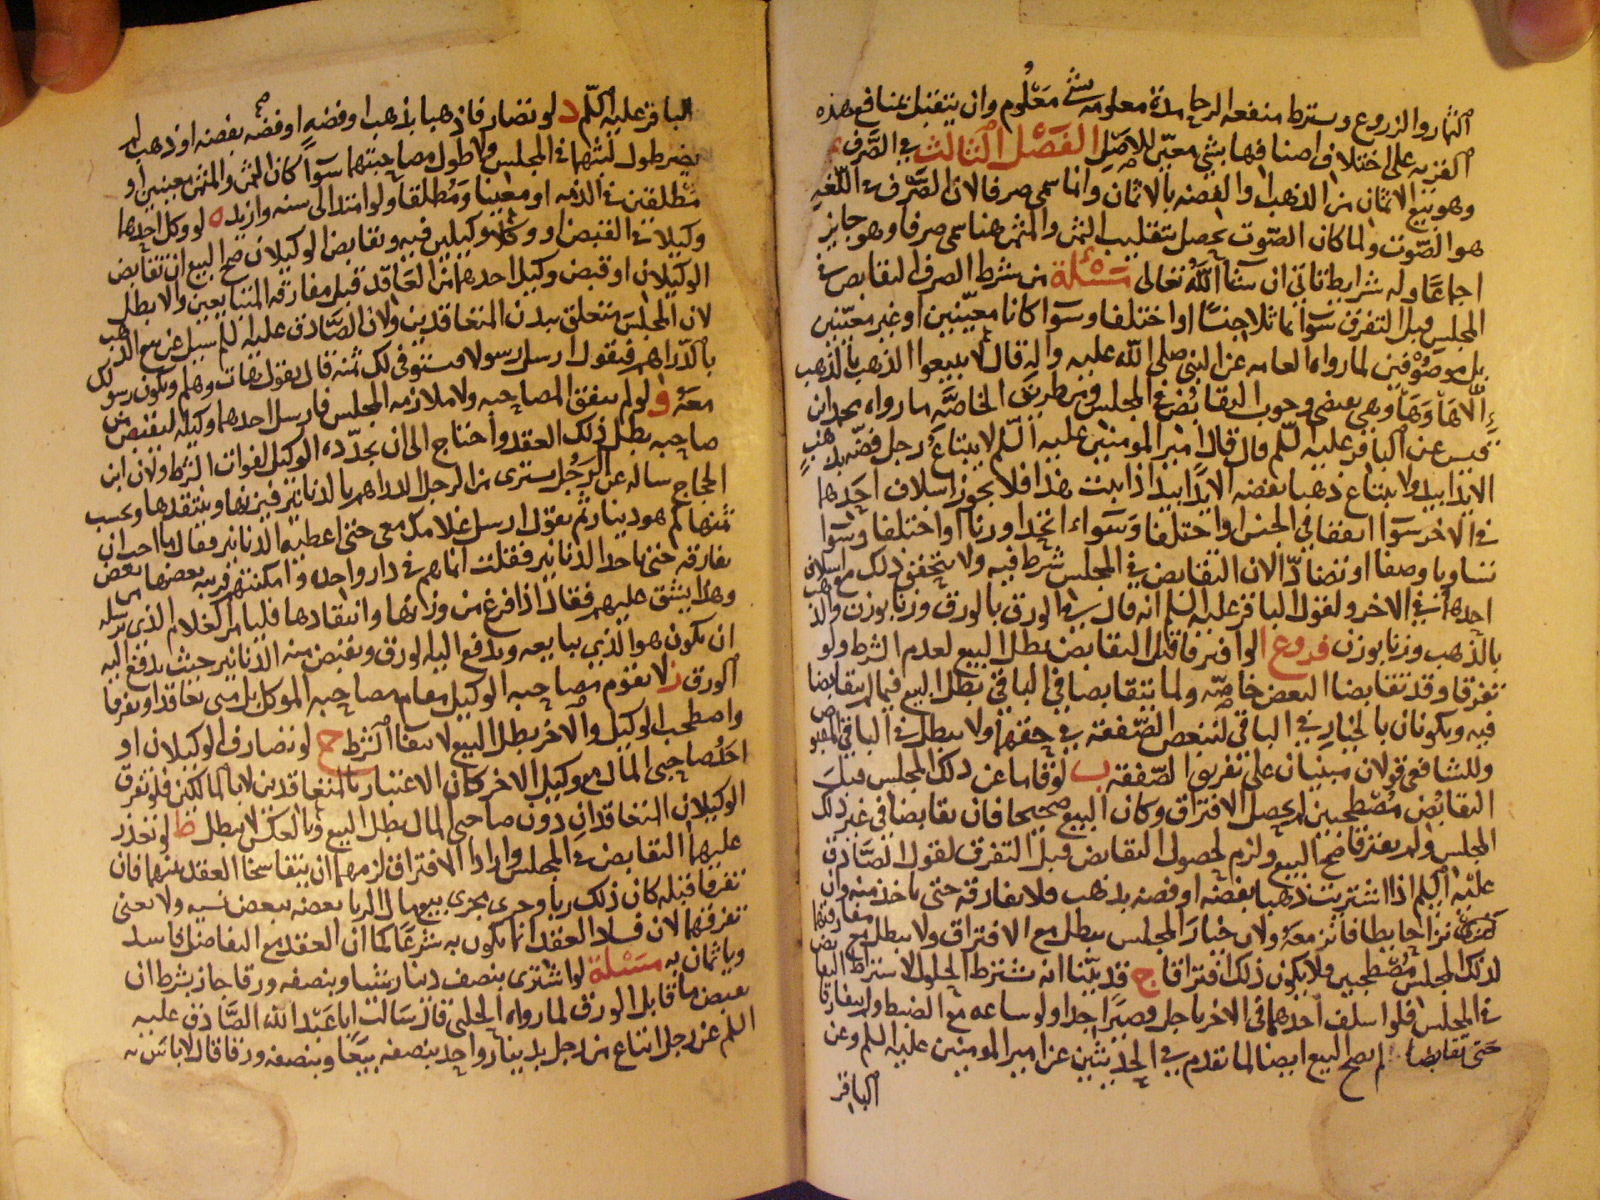 الثمار والزروع ويشترط منفعه الرحا مدة معلومه بشي معلوم وان يتقبل بمنافع هذه
القريه على اختلاف اصنافها بشي معين للاصل الفصل الثالث في الصرف
وهو بيع الاثمان من الذهب والفضه بالاثمان وانما سمى صرفا لان الصرف في اللغه
هو الصوت ولما كان الصوت يحصل بتقليب الثمن والمثمن هنا سمى صرفا وهو جايز
اجماعا وله شرايط تاتى ان شاالله تعالى مسئلة من شرط الصرف التقابض في
المجلس قبل التفرق سوا تماثلا جنسا او اختلفا وسوا كانا معينين او غير معينين
بل موصوفين لما رواه العامه عن النبي صلى الله عليه واله قال لا تبيعوا الذهب بالذهب
الا هآ وهآ وهي يقتضى وجوب التقابض في المجلس ومن طريق الخاصه ما رواه محمد بن
قيس عن الباقر عليه السلم قال قال امير المومنين عليه السلم لا يبتاع رجل فضه بذهب
الا يدا بيد ولا يبتاع ذهبا بفضه الا يدا بيد اذا ثبت هذا فلا يجوز اسلاف احدهما
في الاخر سوا اتفقا في الجنس او اختلفا وسواء اتحدا وزنا او اختلفا وسوا
تساويا وصفا او تضادا لان التقابض في المجلس شرط فيه ولا يتحقق ذلك مع اسلاف
احدهما في الاخر ولقول الباقر عليه السلم انه قال في الورق بالورق وزنا بوزن والذهب
بالذهب وزنا بوزن فروع ا لو افترقا قبل التقابض بطل البيع لعدم الشرط ولو
تفرقا وقد تقابضا البعض خاصه ولما يتقابضا في الباقي بطل البيع فيما لم يتقابضا
فيه ويكونان بالخيار في الباقي لتبعض الصفقه في حقهما ولا يبطل في الباقي المقبوض
وللشافعي قولان مبنيان على تفريق الصفقه ب لو قاما عن ذلك المجلس قبل
التقابض مصطحبين لم يحصل الافتراق وكان البيع صحيحا فان تقابضا في غير ذلك
المجلس ولم يفترقا صح البيع ولزم لحصول التقابض قبل التفرق لقول الصادق
عليه السلم اذا اشتريت ذهبا بفضه او فضه بذهب فلا تفارقه حتى تاخذ منه وان
نزا حايطا فانز معه ولان خيار المجلس يبطل مع الافتراق ولا يبطل مع مفارقتهما
لذلك المجلس مصطحبين فلا يكون ذلك افتراقا ج قد بينا انه يشترط الحلول لاشتراط التقابض
في المجلس فلو اسلف احدهما في الاخر باجل قصير جدا ولو ساعه مع الضبط ولم يتفارقا
حتى تقابضا لم يصح البيع ايضا لما تقدم في الحديثين عن امير المومنين عليه السلم وعن
الباقر
الباقر عليه السلم د لو تصارفا ذهبا بذهب او فضه او فضه بفضه او ذهب لم
يضر طول لبثهما في المجلس ولا طول مصاحبتهما سوآ كان الثمن والمثمن معينين او
مطلقين في الذمه او معينا ومطلقا ولو امتدا الى سنه وازيد ه لو وكل احدهما
وكيلا في القبض او وكلا وكيلين فيه وتقابض الوكيلان صح البيع ان تقابض
الوكيلان او قبض وكيل احدهما من العاقد قبل مفارقه المتبايعين والا بطل
لان المجلس متعلق ببدن المتعاقدين ولان الصادق عليه السلم سيل عن بيع الذهب
بالدراهم فيقول ارسل رسولا فيستوفى لك ثمنه قال يقول هات وهلم ويكون رسولك
معه و لو لم يتفق المصاحبه ولا ملازمه المجلس فارسل احدهما وكيله ليقبض من
صاحبه بطل ذلك العقد واحتاج الى ان يجدده الوكيل لفوات الشرط ولان ابن
الحجاج ساله عن الرجل يشترى من الرجل الدراهم بالدنانير فيزنها وينتقدها ويحسب
ثمنها كم هو دينار ثم يقول ارسل غلامك معى حتى اعطيه الدنانير فقال ما احب ان
يفارقه حتى ياخذ الدنانير فقلت انما هم في دار واحده وامكنتهم قريبه بعضها من بعض
وهذا يشق عليهم فقال اذا فرغ من وزنها وانتقادها فليامر الغلام الذي يرسله
ان يكون هو الذي يبايعه ويدفع اليه الورق ويقبض منه الدنانير حيث يدفع اليه
الورق ز لا تقوم مصاحبه الوكيل مقام مصاحبه الموكل بل متى تعاقدا وتفرقا
واصطحب الوكيل والاخر بطل البيع لانتفآ الشرط ح لو تصارف الوكيلان او
احد صاحبى المال مع وكيل الاخر كان الاعتبار بالمتعاقدين لا بالمالكين فلو تفرق
الوكيلان المتعاقدان دون صاحبى المال بطل البيع وبالعكس لا يبطل ط لو تعذر
عليهما التقابض في المجلس وارادا الافتراق لزمهما ان يتفاسخا العقد بينهما فان
تفرقا قبله كان ذلك ربا وجرى مجرى بيع مال الربا بعضه ببعض نسيه ولا يعنى
تفرقهما لان فساد العقد انما يكون به شرعا كما ان العقد مع التفاضل فاسد
وياثمان به مسئلة لو اشترى بنصف دينار شيا وبنصفه ورقا جاز بشرط ان
يقبض ما قابل الورق لما رواه الحلبي قال سالت ابا عبد الله الصادق عليه
السلم عن رجل ابتاع من رجل بدينار واحد بنصفه بيعا وبنصفه ورقا قال لا باس به